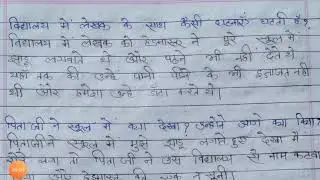 विद्यालय में लेखक के साथ कैसी घटनाएं घटती हैं?
विद्यालय में लेखक को हेडमास्टर ने पूरे स्कूल में
झाडू लगवाते थे और पढ़ने भी नहीं देते थे
यहाँ तक की उन्हे पानी पीने के भी इजाजत नहीं
थी और हमेशा उन्हे डाँटा करते थे।
पिताजी ने स्कूल में क्या देखा? उन्होंने आगे क्या किया?
पिताजी ने स्कूल में मुझे झाडू लगाते हुए देखा मैं
रोने लगा तो पिताजी ने उस विद्यालय से नाम कटवा
और हेडमास्टर की एक न सुनी।